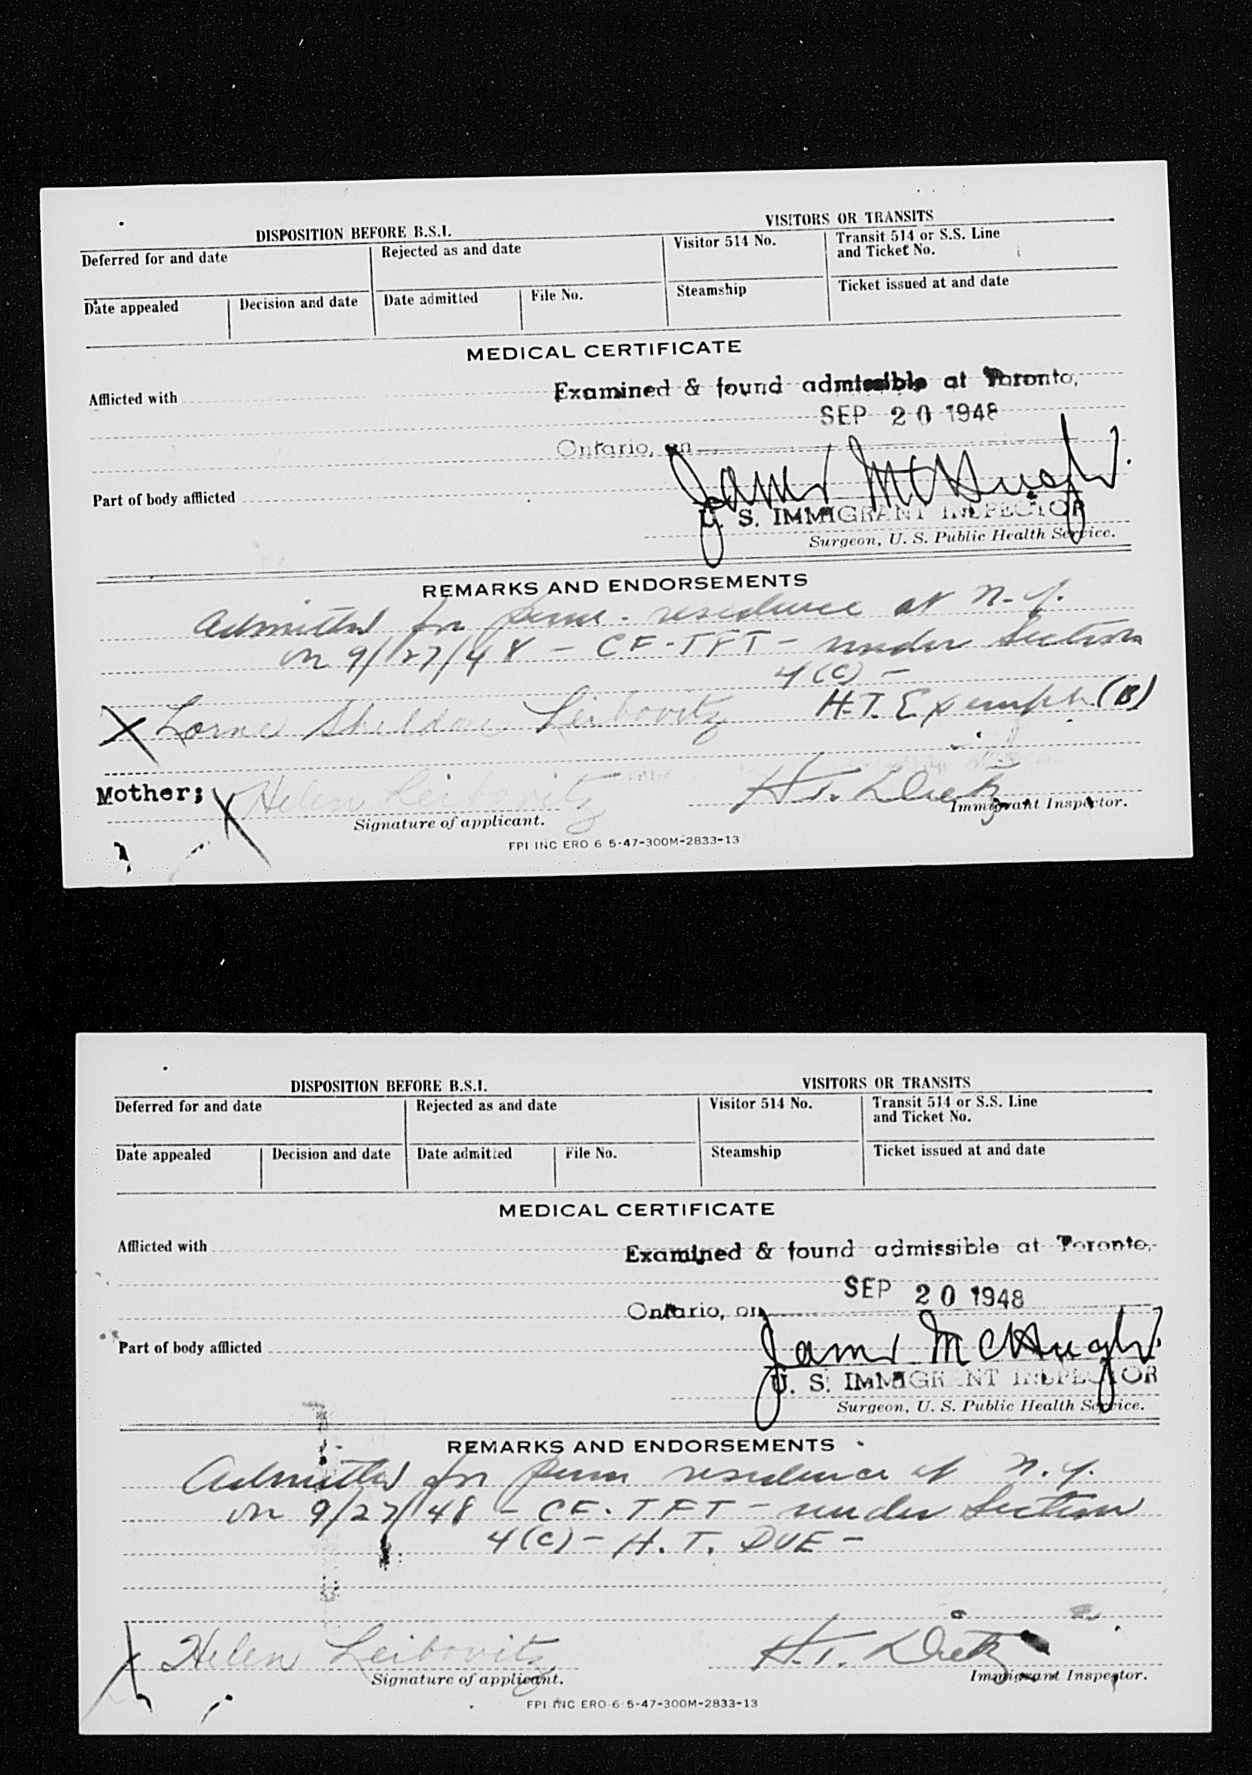 DISPOSITION BEFORE B.S.I.
VISITORS OR TRANSITS
Deferred for and date
Rejected as and date
Visitor 514 No.
Transit 514 or S.S. Line
and Ticket No.
Date appealed
Decision and date
Date admitted
File No.
Steamship
Ticket issued at and date
MEDICAL CERTIFICATE
Afflicted with
Examined & found admissible at Toronto,
SEP 20 1948
Ontario, on
Part of body afflicted
James McHugh
U. S. IMMIGRANT INSPECTOR
Surgeon, U. S. Public Health Service.
REMARKS AND ENDORSEMENTS
Admitted for perm. residence at N.Y.
on 9/27/48 - CF-TFT - under Section
4(C) -
X Lorne Sheldon Leibovitz H.T. Exempt (B)
Mother; X Helen Leibovitz H.T. Dietz
Signature of applicant.
Immigrant Inspector.
FPI INC ERO 6 5-47-300M-2833-13
DISPOSITION BEFORE B.S.I.
VISITORS OR TRANSITS
Deferred for and date
Rejected as and date
Visitor 514 No.
Transit 514 or S.S. Line
and Ticket No.
Date appealed
Decision and date
Date admitted
File No.
Steamship
Ticket issued at and date
MEDICAL CERTIFICATE
Afflicted with
Examined & found admissible at Toronto,
SEP 20 1948
Ontario, on
Part of body afflicted
James McHugh
U. S. IMMIGRANT INSPECTOR
Surgeon, U. S. Public Health Service.
REMARKS AND ENDORSEMENTS
Admitted for perm residence at N.Y.
on 9/27/48 - CF-TFT - under Section
4(C) - H.T. DUE -
X Helen Leibovitz H.T. Dietz
Signature of applicant.
Immigrant Inspector.
FPI INC ERO 6 5-47-300M-2833-13